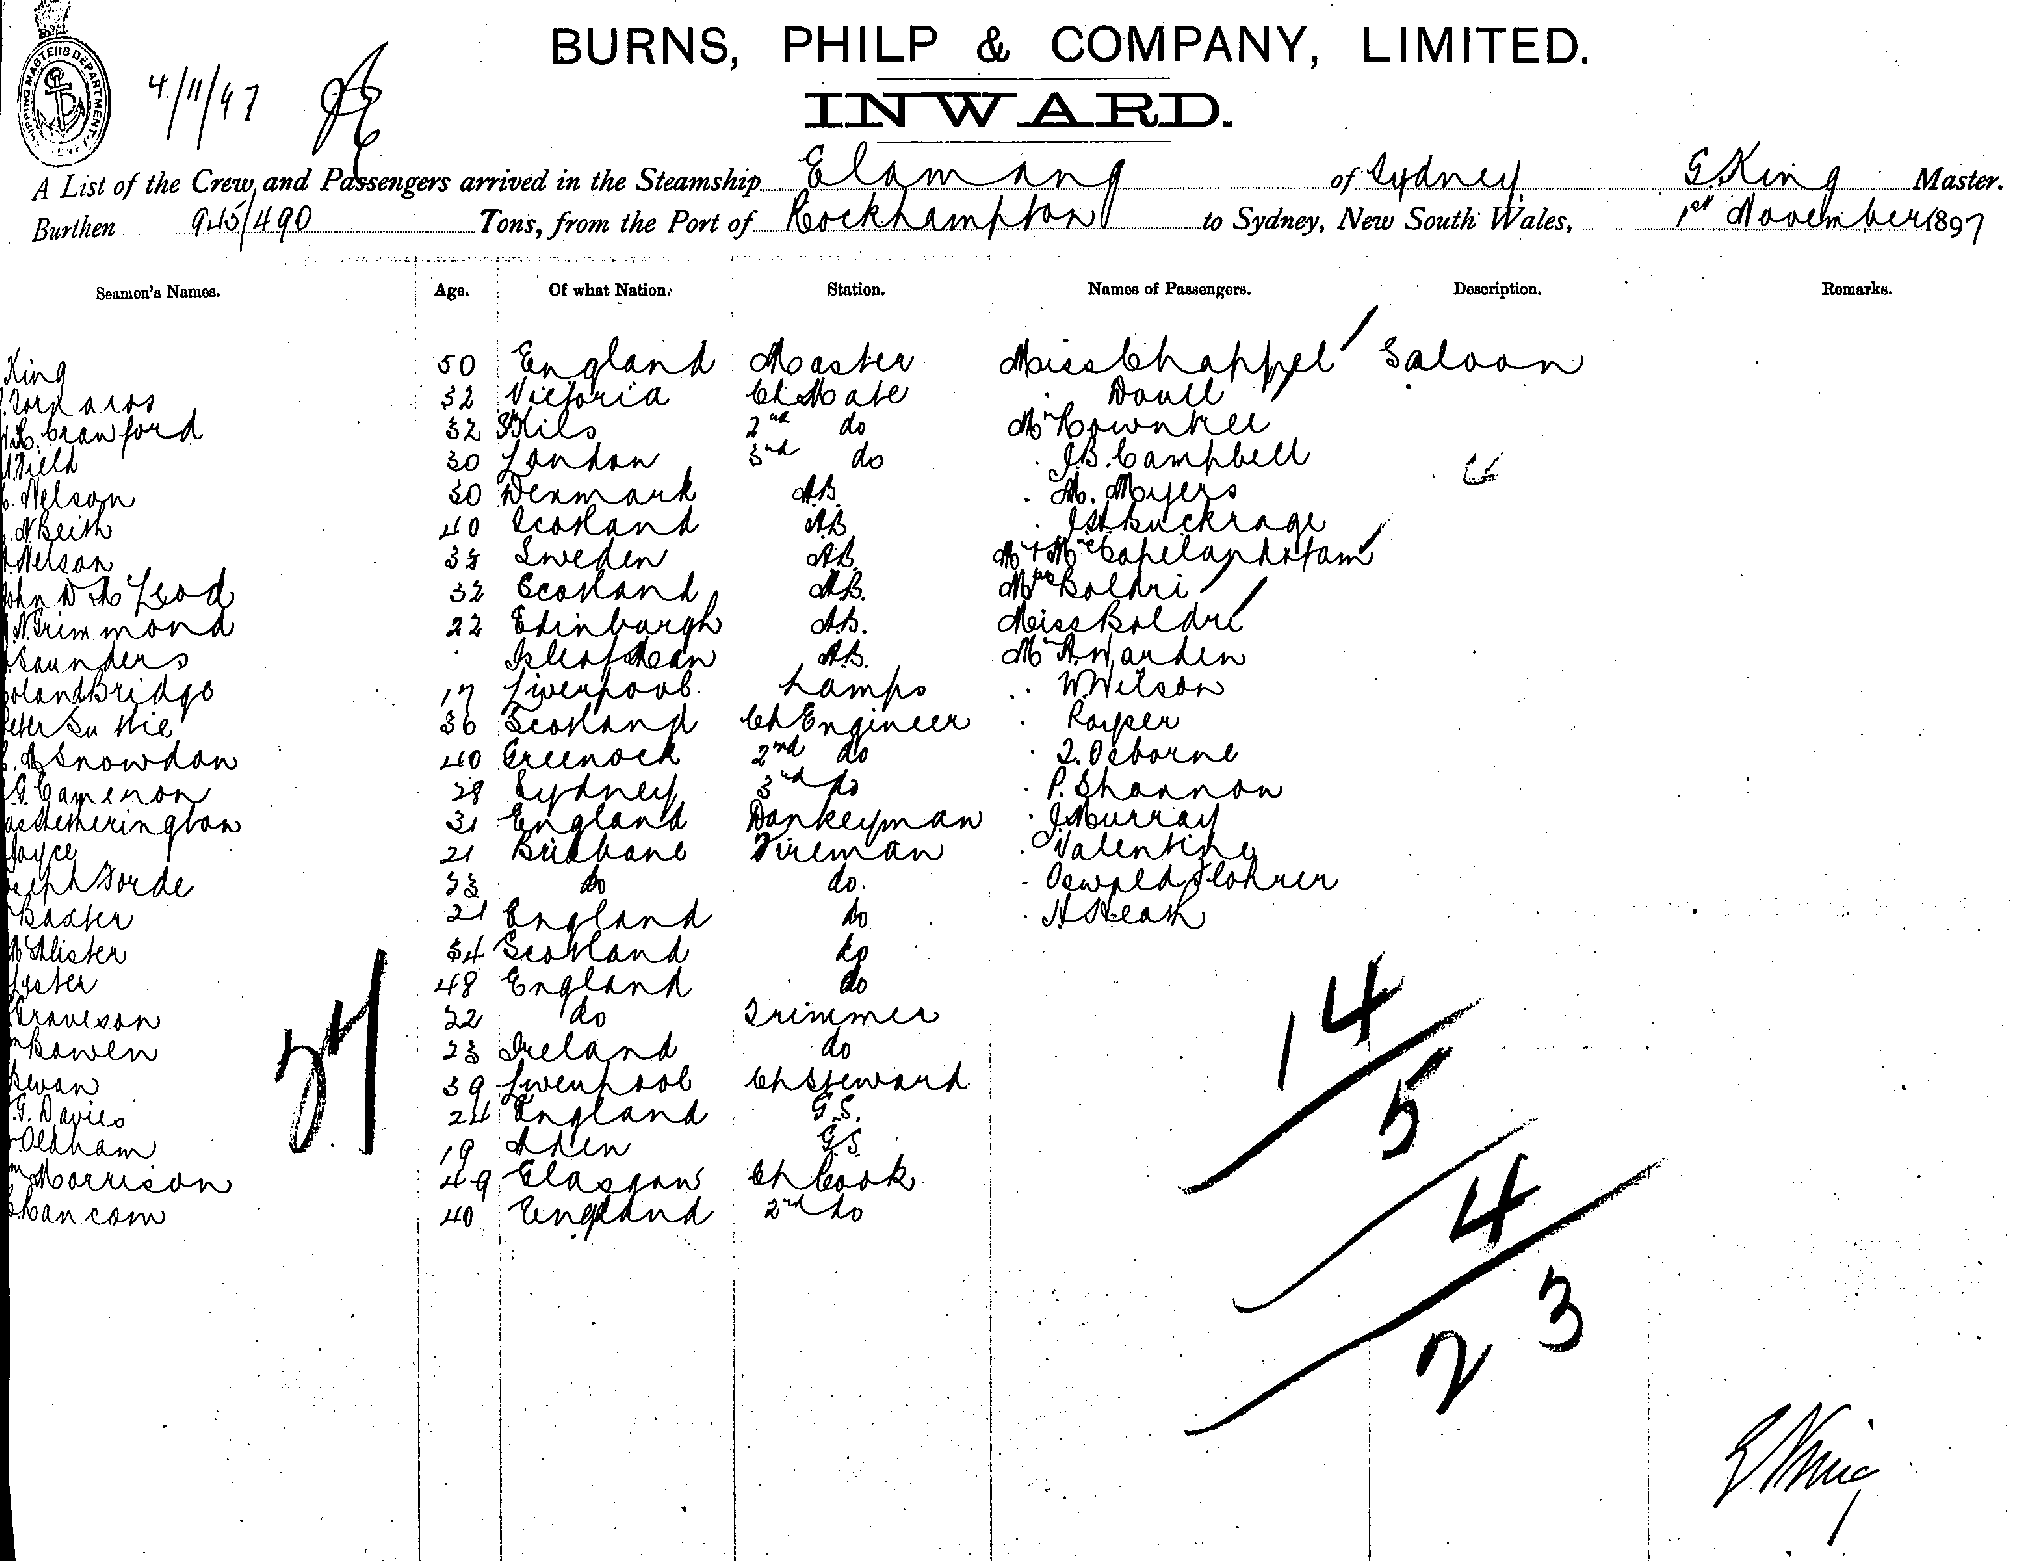 BURNS, PHILP & COMPANY, LIMITED.
4/11/97
INWARD.
A List of the Crew and Passengers arrived in the Steamship Elamang of Sydney G. King Master.
Burthen 945/490 Tons, from the Port of Rockhampton to Sydney, New South Wales, 1st November 1897
Seamen's Names. Age. Of what Nation. Station. Names of Passengers. Description. Remarks.
King 50 England Master Miss Chappel Saloon
32 Victoria Ch Mate Doull
Crawford 32 2nd do Mr Rowntree
Field 30 London 3rd do J.B. Campbell
Nelson 30 Denmark AB. M. Myers
N Beith 40 Scotland AB
Nelson 38 Sweden AB. Mr & Mrs Copeland & fam
John D McLeod 32 Scotland AB. Mrs Boldri
Grimmond 22 Edinburgh AB. Miss Boldri
Saunders Isle of Man AB. Mr A Warden
Roland Bridge 17 Liverpool Lamps W Wilson
Peter Su ttie 36 Scotland Ch Engineer Rayser
Snowdon 40 Greenock 2nd do T. Osborne
G. Cameron 28 Sydney 3rd do P. Shannon
Hetherington 31 England Donkeyman J. Murray
Joyce 21 Brisbane Fireman Valentine
Joseph Forde 33 do do. Oswald Flohrer
Baxter 21 England do H Heath
McAlister 34 Scotland do
Lester 48 England do
Graveson 22 do Trimmer
Bowen 23 Ireland do
Bevan 39 Liverpool Ch Steward
G. Davies 24 England G.S.
Oldham 19 Aden G.S.
Morrison 49 Glasgow Ch Cook
Hancom 40 England 2nd do
27
14
5
4
23
G King